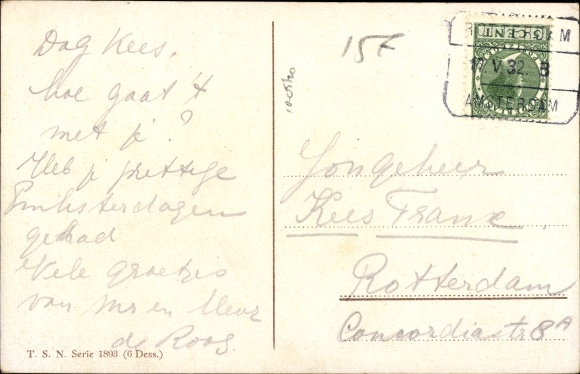 Dag Kees,
hoe gaat 't
met je?
Heb je prettige
Pinksterdagen
gehad
Vele groetjes
van Mr en Mevr
de Roos.
T. S. N. Serie 1893 (6 Dess.)
15f
ROTTERDAM
17 V 32 3
AMSTERDAM
CENT
Jongeheer
Kees Franx
Rotterdam
Concordiastr 8A